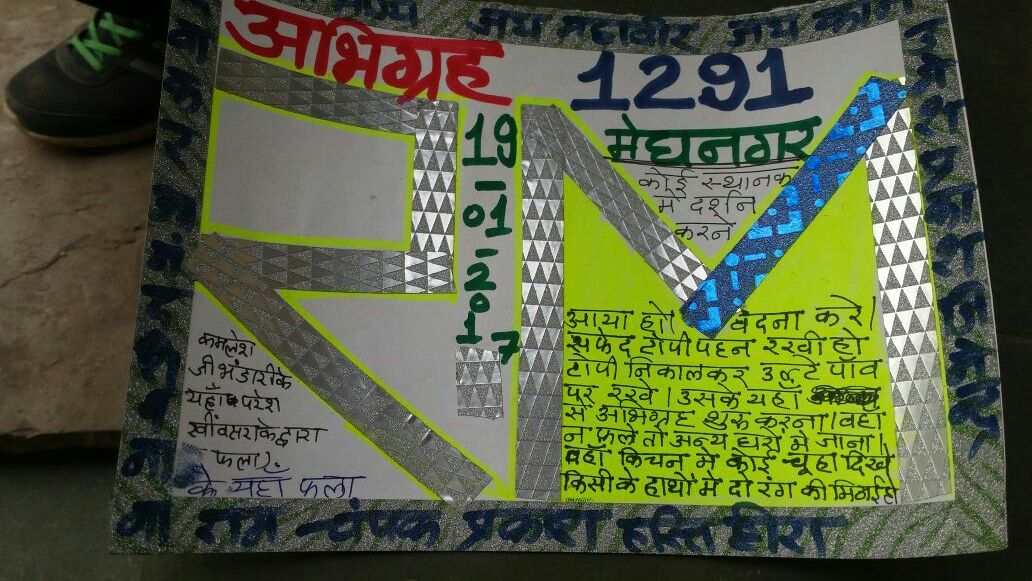 जय महावीर जय
अभिग्रह 1291
19-01-2017
मेघनगर
कोई स्थानक
में दर्शन
करने
आया हो। वंदना करे।
सफेद टोपी पहन रखी हो
टोपी निकालकर उल्टे पाँव
पर रखे। उसके यहाँ
से अभिग्रह शुरु करना। वहाँ
न फले तो अन्य घरो में जाना।
वहाँ किचन में कोई चूहा दिखे
किसी के हाथो में दो रंग की मिठाई हो
कमलेश
जी भंडारी के
यहाँ परेश
खींवसरा के द्वारा
फला।
के यहाँ फला
राम चंपक प्रकाश हस्ति हीरा